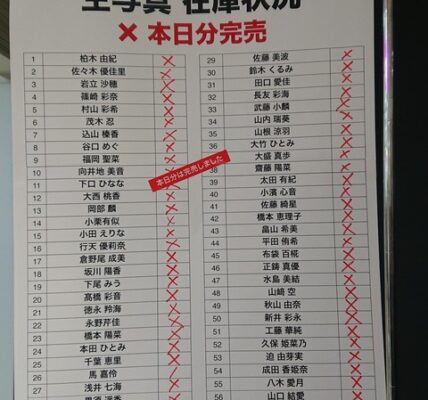 生写真 在庫状況
× 本日分完売
1 柏木 由紀 ×
2 佐々木 優佳里 ×
3 岩立 沙穂 ×
4 篠崎 彩奈 ×
5 村山 彩希 ×
6 茂木 忍 ×
7 込山 榛香 ×
8 谷口 めぐ ×
9 福岡 聖菜 ×
10 向井地 美音 ×
11 下口 ひなな ×
12 大西 桃香 ×
13 岡部 麟 ×
14 小栗 有以 ×
15 小田 えりな ×
16 行天 優莉奈 ×
17 倉野尾 成美 ×
18 坂川 陽香 ×
19 下尾 みう ×
20 髙橋 彩音 ×
21 徳永 羚海 ×
22 永野 芹佳 ×
23 橋本 陽菜 ×
24 本田 ひとみ ×
25 千葉 恵里 ×
26 馬 嘉伶 ×
27 浅井 七海 ×
本日分は完売しました
29 佐藤 美波 ×
30 鈴木 くるみ ×
31 田口 愛佳 ×
32 長友 彩海 ×
33 武藤 小麟 ×
34 山内 瑞葵 ×
35 山根 涼羽 ×
36 大竹 ひとみ ×
大盛 真歩 ×
38 齋藤 陽菜 ×
39 太田 有紀 ×
40 小濱 心音 ×
41 佐藤 綺星 ×
42 橋本 恵理子 ×
43 畠山 希美 ×
44 平田 侑希 ×
45 布袋 百椛 ×
46 正鋳 真優 ×
47 水島 美結 ×
48 山﨑 空 ×
49 秋山 由奈 ×
50 新井 彩永 ×
51 工藤 華純 ×
52 久保 姫菜乃 ×
53 迫 由芽実 ×
54 成田 香姫奈 ×
55 八木 愛月 ×
56 山口 結愛 ×